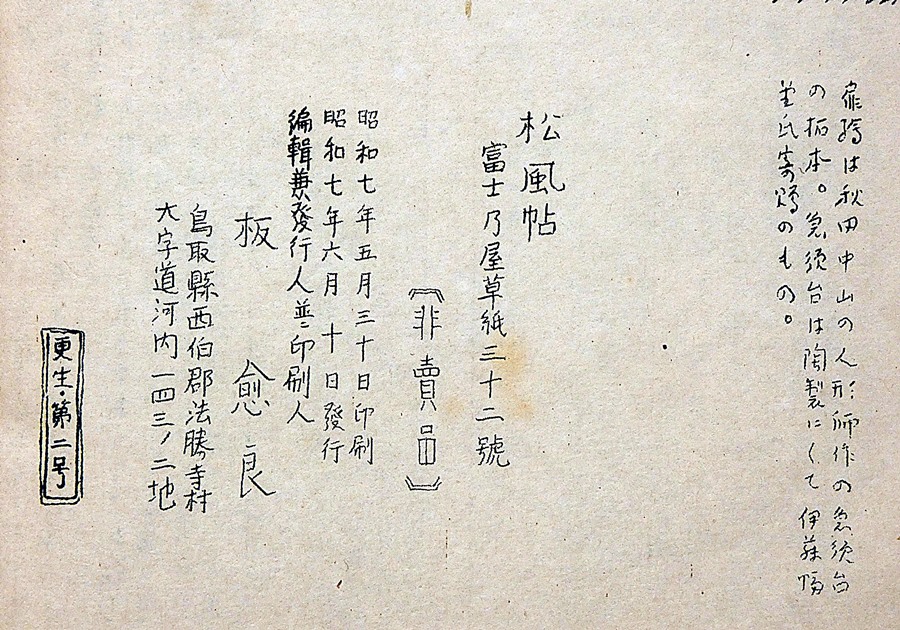 扉繪は秋田中山の人形師作の急須台
の拓本。急須台は陶製にて 伊藤幅
堂氏寄贈のもの。
松風帖
富士乃屋草紙三十二號
〔非賣品〕
昭和七年五月三十日印刷
昭和七年六月十日發行
編輯兼發行人並ニ印刷人
板愈良
鳥取縣西伯郡法勝寺村
大字道河内一四三ノ二地
更生・第二号